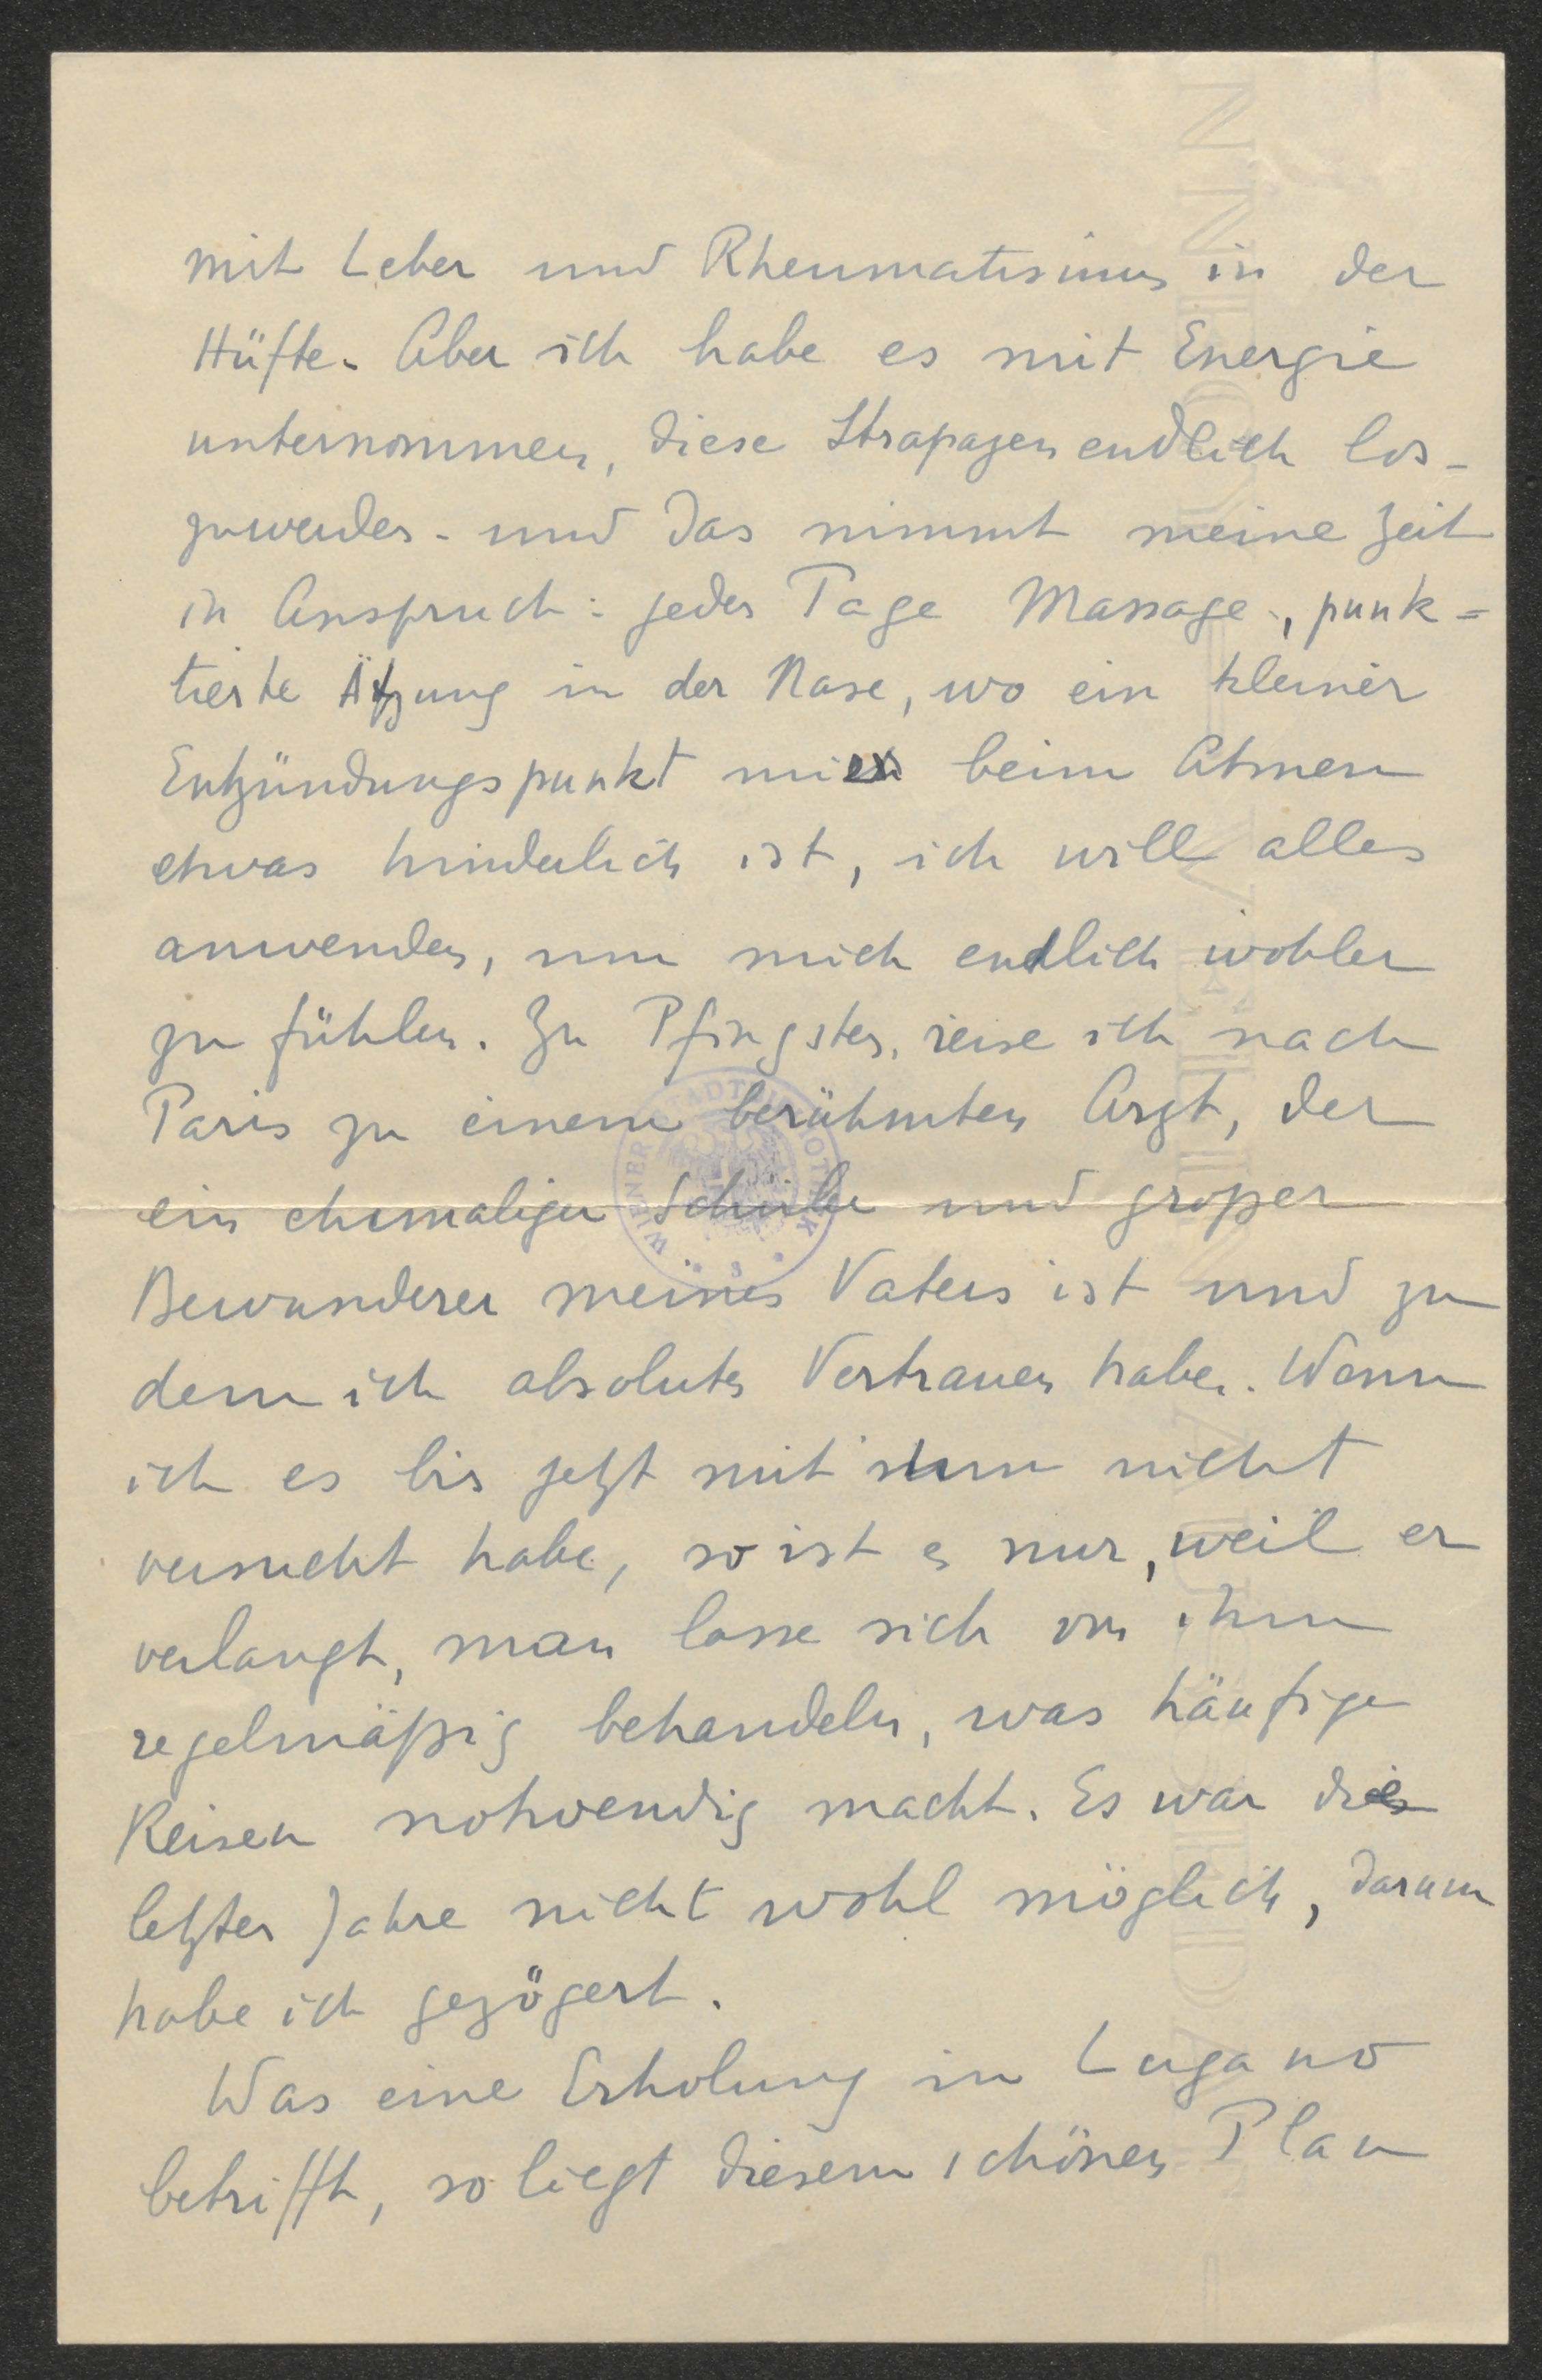 mit Leber und Rheumatismus in der
Hüfte. Aber ich habe es mit Energie
unternommen, diese Strapazen endlich los-
zuwerden - und das nimmt meine Zeit
in Anspruch: jeden Tage Massage, punk-
tierte Ätzung in der Nase, wo ein kleiner
Entzündungspunkt mir beim Atmen
etwas hinderlich ist, ich will alles
anwenden, um mich endlich wohler
zu fühlen. Zu Pfingsten reise ich nach
Paris zu einem berühmten Arzt, der
ein ehemaliger Schüler und großer
Bewunderer meines Vaters ist und zu
dem ich absolutes Vertrauen habe. Wenn
ich es bis jetzt mit ihm nicht
versucht habe, so ist es nur, weil er
verlangt, man lasse sich von ihm
regelmäßig behandeln, was häufige
Reisen notwendig macht. Es war die
letzten Jahre nicht wohl möglich, darum
habe ich gezögert.
Was eine Erholung in Lugano
betrifft, so liegt diesem schönen Plan
WIENER STADTBIBLIOTHEK